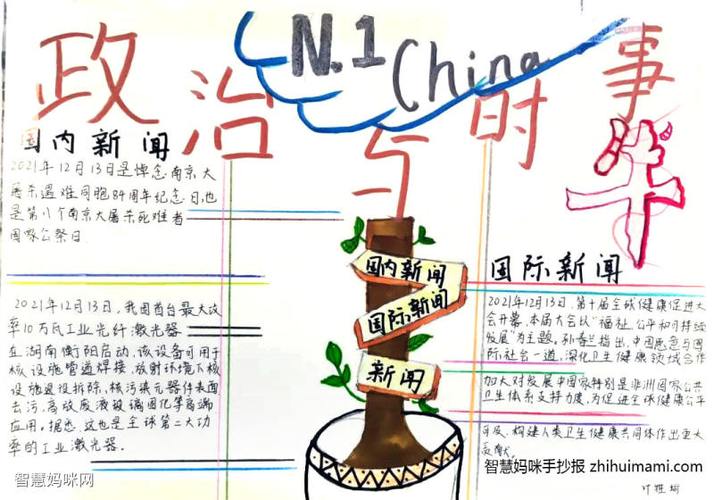 N.1
China
政治与时事
国内新闻
2021年12月13日是悼念南京大
屠杀遇难同胞84周年纪念日,也
是第八个南京大屠杀死难者
国家公祭日.
2021年12月13日,我国首台最大功
率10万瓦工业光纤激光器
在湖南衡阳启动,该设备可用于
核设施管道焊接、放射环境下核
设施退役拆除、核污染元器件表面
去污、高放废液玻璃固化等高端
应用。据悉,这也是全球第二大功
率的工业激光器.
国内新闻
国际新闻
新闻
国际新闻
2021年12月13日,第十届全球健康促进大
会开幕,本届大会以“福祉、公平和可持续
发展”为主题。孙春兰指出,中国愿意与国
际社会一道,深化卫生健康领域合作
加大对发展中国家特别是非洲国家公共
卫生体系支持力度,为促进全球健康公平
可及、构建人类卫生健康共同体作出更大
贡献.
智慧妈咪网
智慧妈咪手抄报 zhihuimami.com